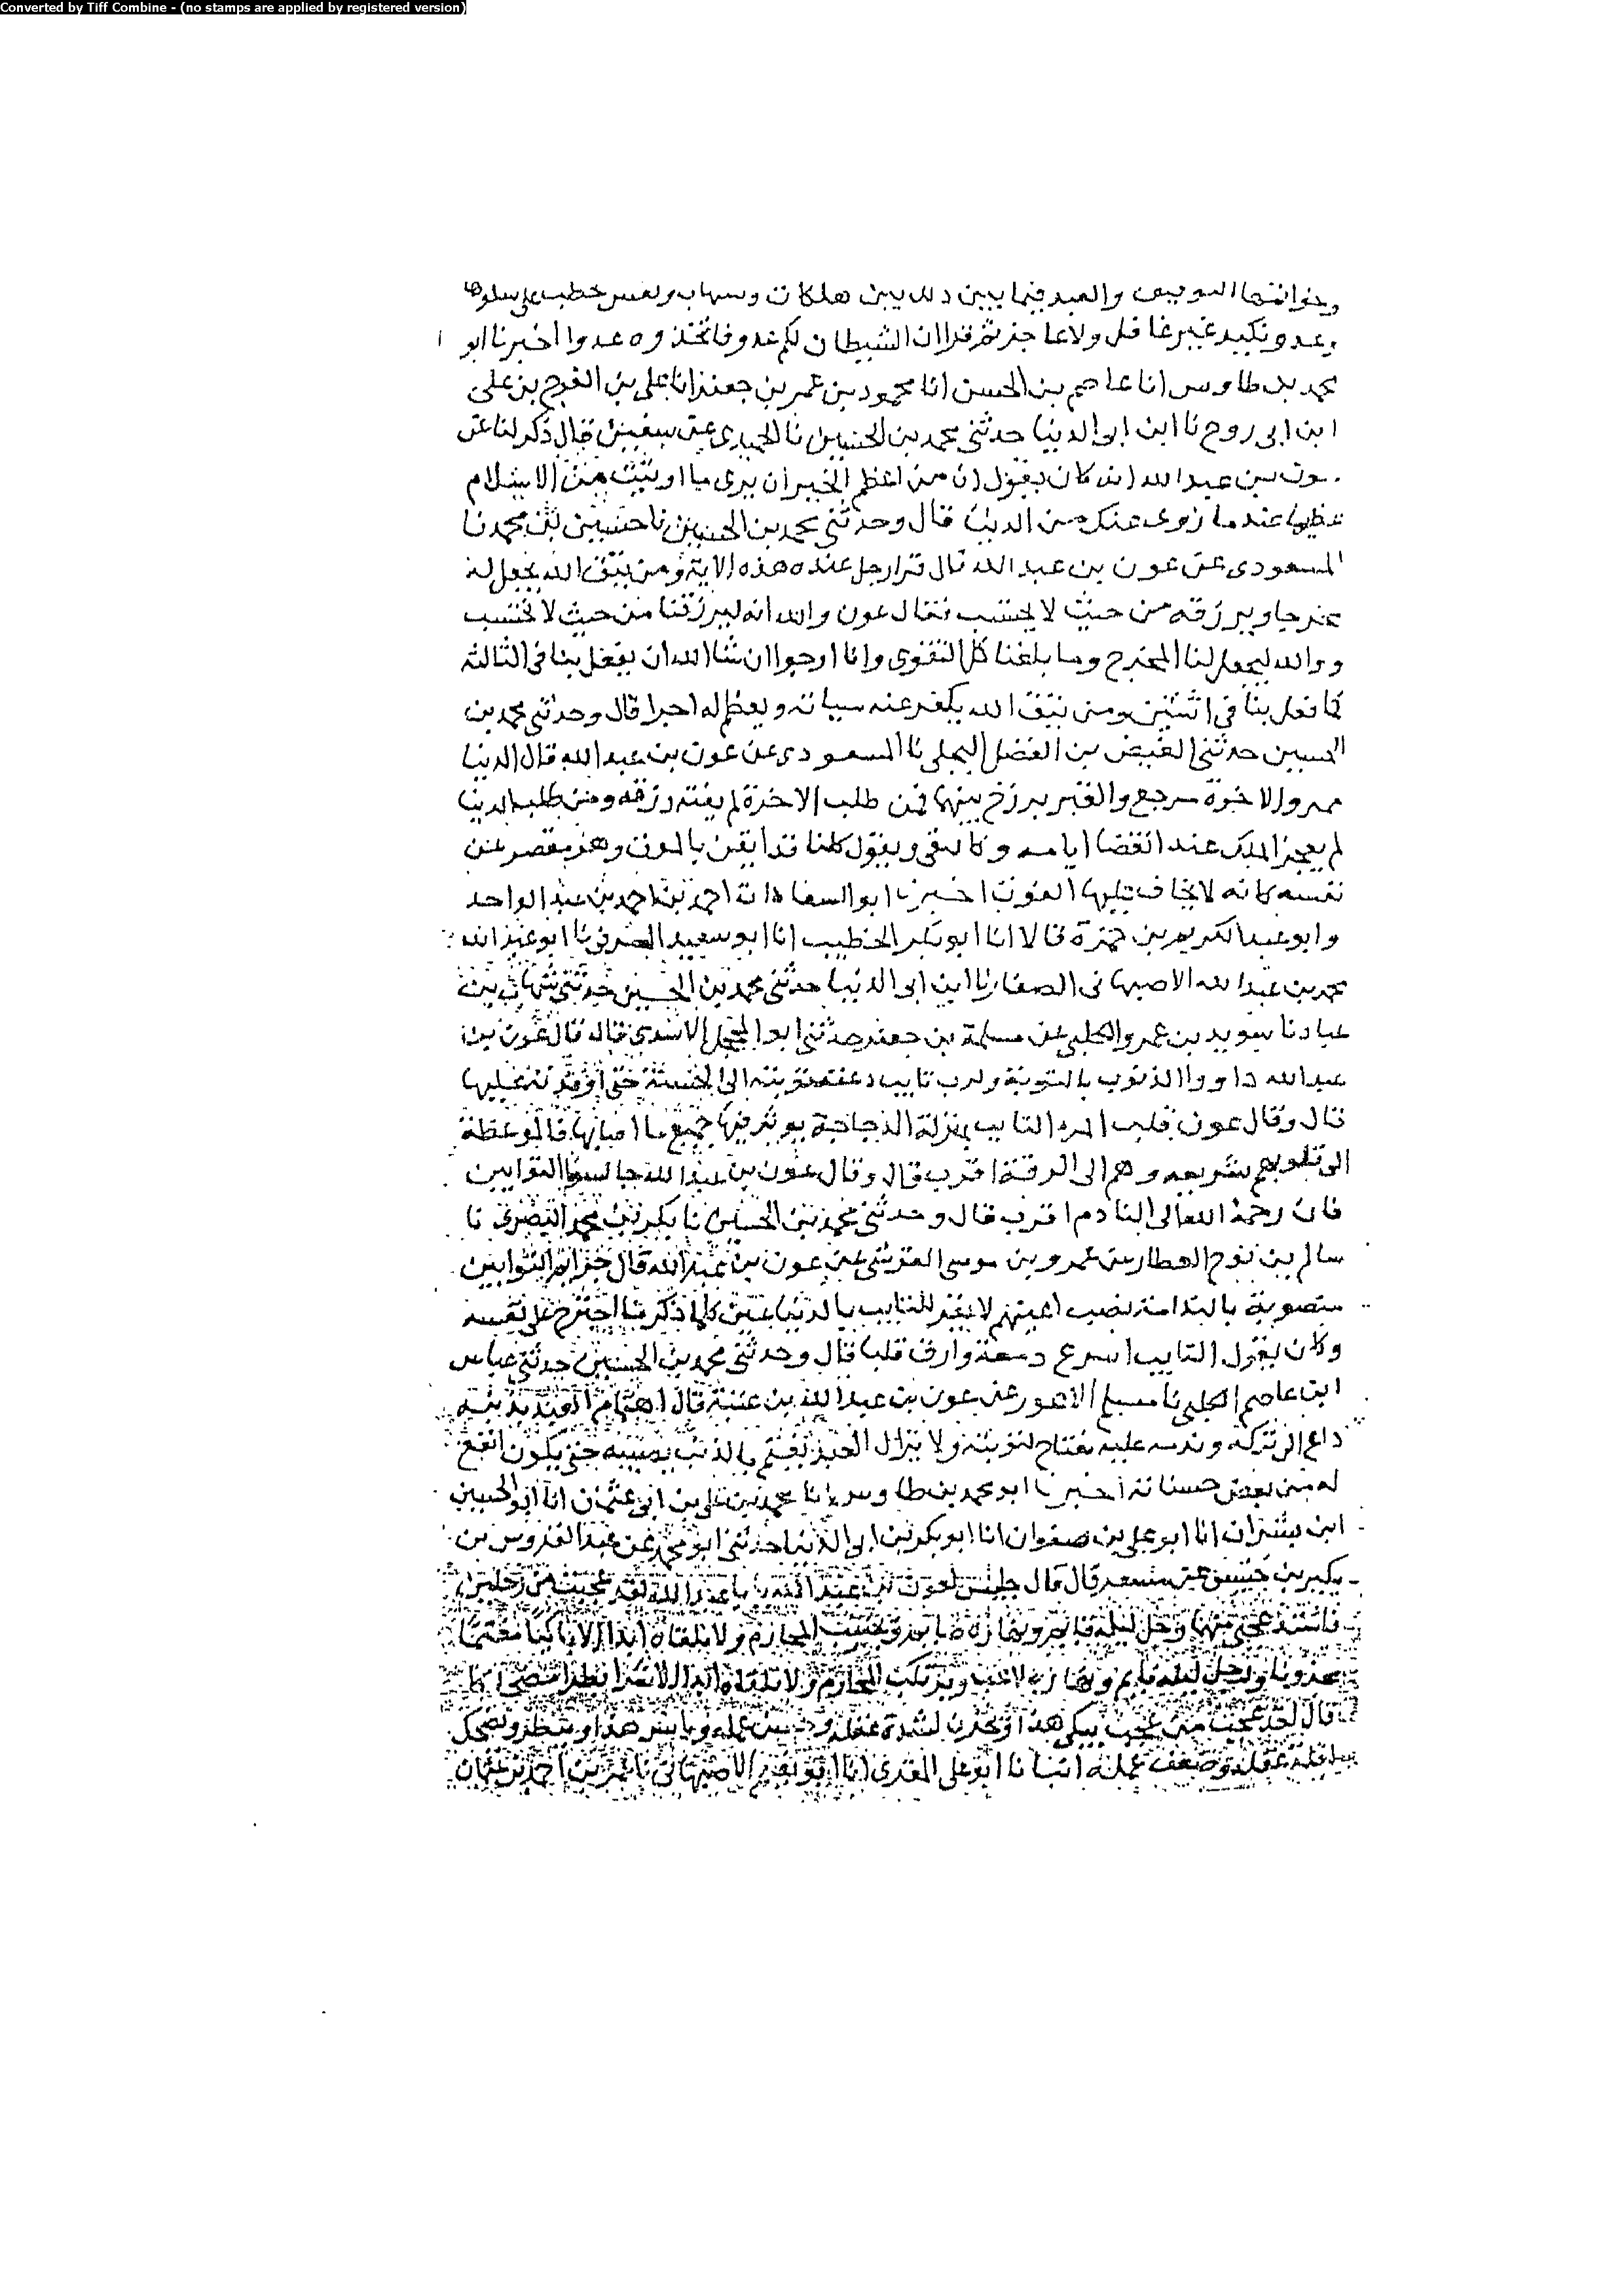 Converted by Tiff Combine - (no stamps are applied by registered version)
والعبد فيما بين ذلك بين هلكات
وعدو يكيد غير غافل ولا عاجز ثم قرا ان الشيطان لكم عدو فاتخذوه عدوا اخبرنا ابو
محمد بن طاوس انا عاصم بن الحسن انا محمود بن عمر بن جعفر انا علي بن الفرج بن علي
ابن ابي روح نا ابن ابي الدنيا حدثني محمد بن الحسين نا الحميدي عن سفين قال ذكر لنا عن
عون بن عبد الله انه كان يقول ان من اعظم الخير ان يرى ما اوتيت من الاسلام
عظيما عندما زوى عنك من الدنيا قال وحدثني محمد بن الحسين نا حسين بن محمد نا
المسعودي عن عون بن عبد الله قال قرا رجل عنده هذه الاية ومن يتق الله يجعل له
مخرجا ويرزقه من حيث لا يحتسب فقال عون والله انه ليرزقنا من حيث لا نحتسب
ووالله ليجعل لنا المخرج وما بلغنا كل التقوى وانا ارجوا ان شا الله ان يفعل بنا في الثالثه
كما فعل بنا في اثنتين ومن يتق الله يكفر عنه سياته ويعظم له اجرا قال وحدثني محمد بن
الحسين حدثني الفيض بن الفضل البجلي نا المسعودي عن عون بن عبد الله قال الدنيا
ممر والاخرة مرجع والقبر برزخ بينهما فمن طلب الاخرة لم يفته رزقه ومن طلب الدنيا
لم يعجز الملك عند انقضا ايامه وكا يبقى ويقول كلنا قد ايقن بالموت وهو مقصر عن
نفسه كانه لا يخاف عليها الفوت اخبرنا ابو السعادات احمد بن احمد بن عبد الواحد
وابو عبد الكريم بن حمزة قالا انا ابو بكر الخطيب انا ابو سعيد الصرفي نا ابو عبد الله
محمد بن عبد الله الاصبهاني الصفار نا ابن ابي الدنيا حدثني محمد بن الحسين حدثني شهاب بن
عباد نا سويد بن عمرو الكلبي عن مسلمة بن جعفر حدثني ابو المجحل الاسدي قال قال عون بن
عبد الله داووا الذنوب بالتوبة ولرب تايب دعته توبته الى الجنة حتى اوفدته عليها
قال وقال عون قلب المرء التايب بمنزلة الزجاجة يوثر فيها جميع ما اصابها فالموعظة
الى قلوبهم سريعه وهم الى الرقة اقرب قال وقال عون بن عبد الله جالسوا التوابين
فان رحمة الله الى النادم اقرب قال وحدثني محمد بن الحسين نا بكر بن محمد البصري نا
سالم بن نوح العطار عن عمرو بن موسى القرشي عن عون بن عبد الله قال جرايم التوابين
منصوبة بالندامة نصب اعينهم لا تقر للتايب بالدنيا عين كلما ذكر ما اجترح على نفسه
وكان يقول التايب اسرع دمعة وارق قلبا قال وحدثني محمد بن الحسين حدثني عباس
ابن عاصم الكلبي نا مسلم الاعور عن عون بن عبد الله بن عتبة قال اهتمام العبد بذنبه
داع الى تركه وندمه عليه مفتاح لتوبته ولا يزال العبد يهتم بالذنب يصيبه حتى يكون انفع
له من بعض حسناته اخبرنا ابو محمد بن طاوس انا محمد بن علي بن ابي عثمان انا ابو الحسين
ابن بشران انا ابو علي بن صفوان انا ابو بكر بن ابي الدنيا حدثني ابو محمد عن عبد القدوس بن
بكير بن خنيس عن مسعر قال قال جليس لعون بن عبد الله يا عبد الله لقد عجبت من رجلين
فاشتد عجبي منهما رجل ليله قايم ونهاره صايم ويجتنب المحارم ولا تلقاه ابدا الا باكيا مغتما
محزونا ورجل ليله نايم ونهاره لاعب ويرتكب المحارم ولا تلقاه ابدا الا
قال لقد عجبت من عجب يبكي هذا ويحزن لشدة عقله وحسن عمله
قلة عقله وضعف عمله انبانا ابو علي المقري انا ابو نعيم الاصبهاني نا عمر بن احمد بن عثمان